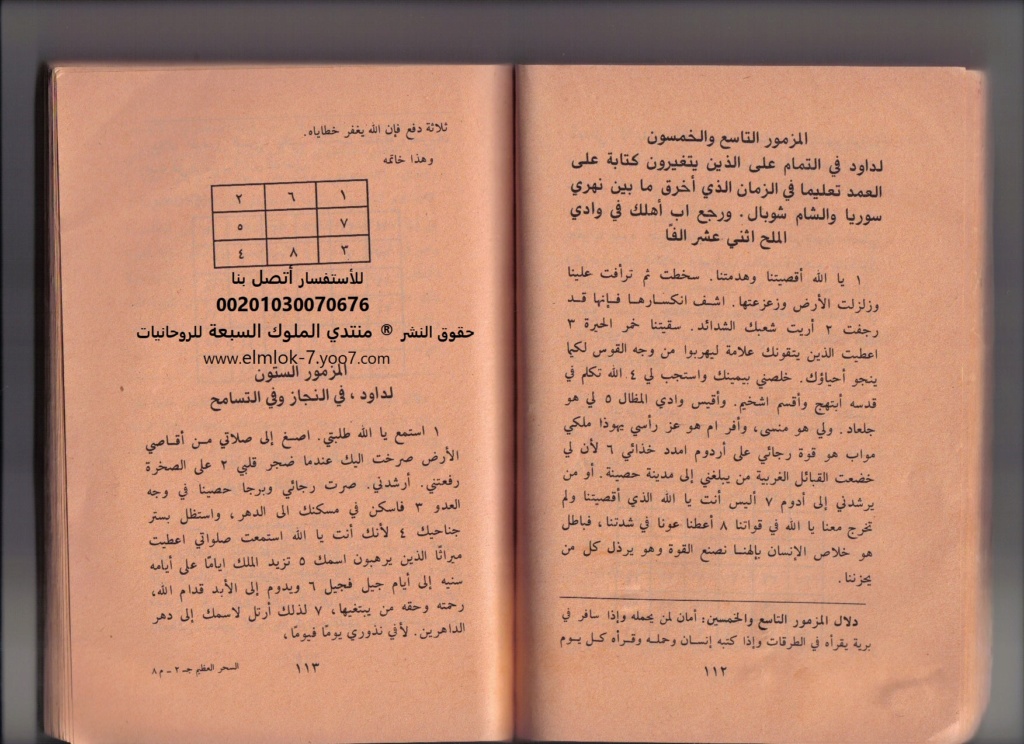 المزمور التاسع والخمسون
لداود في التمام على الذين يتغيرون كتابة على
العمد تعليما في الزمان الذي أخرق ما بين نهري
سوريا والشام شوبال. ورجع اب أهلك في وادي
الملح اثني عشر الفًا
١ يا الله أقصيتنا وهدمتنا. سخطت ثم ترأفت علينا
وزلزلت الأرض وزعزعتها. اشف انكسارها فإنها قد
رجفت ٢ أريت شعبك الشدائد. سقيتنا خمر الحيرة ٣
اعطيت الذين يتقونك علامة ليهربوا من وجه القوس لكيما
ينجو أحياؤك. خلصني بيمينك واستجب لي ٤ الله تكلم في
قدسه أبتهج وأقسم اشخيم. وأقيس وادي المظال ٥ لي هو
جلعاد. ولي هو منسى، وأفر ام هو عز رأسي يهوذا ملكي
مواب هو قوة رجائي على أردوم امدد خذائي ٦ لأن لي
خضعت القبائل الغربية من يبلغني إلى مدينة حصينة. أو من
يرشدني إلى أدوم ٧ أليس أنت يا الله الذي أقصيتنا ولم
تخرج معنا يا الله في قواتنا ٨ أعطنا عونا في شدتنا، فباطل
هو خلاص الإنسان بإلهنا نصنع القوة وهو يرذل كل من
يحزننا.
دلال المزمور التاسع والخمسين: أمان لمن يحمله وإذا سافر في
برية يقرأه في الطرقات وإذا كتبه إنسان وحمله وقرأه كل يوم
١١٢
ثلاثة دفع فإن الله يغفر خطاياه.
وهذا خاتمه
١ ٦ ٢
٧ ٥
٣ ٨ ٤
للأستفسار أتصل بنا
00201030070676
حقوق النشر ® منتدي الملوك السبعة للروحانيات
www.elmlok-7.yoo7.com
المزمور الستون
لداود ، في النجاز وفي التسامح
١ استمع يا الله طلبتي. اصغ إلى صلاتي من أقاصي
الأرض صرخت اليك عندما ضجر قلبي ٢ على الصخرة
رفعتني. أرشدني. صرت رجائي وبرجا حصينا في وجه
العدو ٣ فاسكن في مسكنك الى الدهر، واستظل بستر
جناحيك ٤ لأنك أنت يا الله استمعت صلواتي اعطيت
ميراثًا الذين يرهبون اسمك ٥ تزيد الملك ايامًا على أيامه
سنيه إلى أيام جيل فجيل ٦ ويدوم إلى الأبد قدام الله،
رحمته وحقه من يبتغيها، ٧ لذلك أرتل لاسمك إلى دهر
الداهرين. لأفي نذوري يومًا فيومًا،
السحر العظيم جـ ٢ - م ٨
١١٣